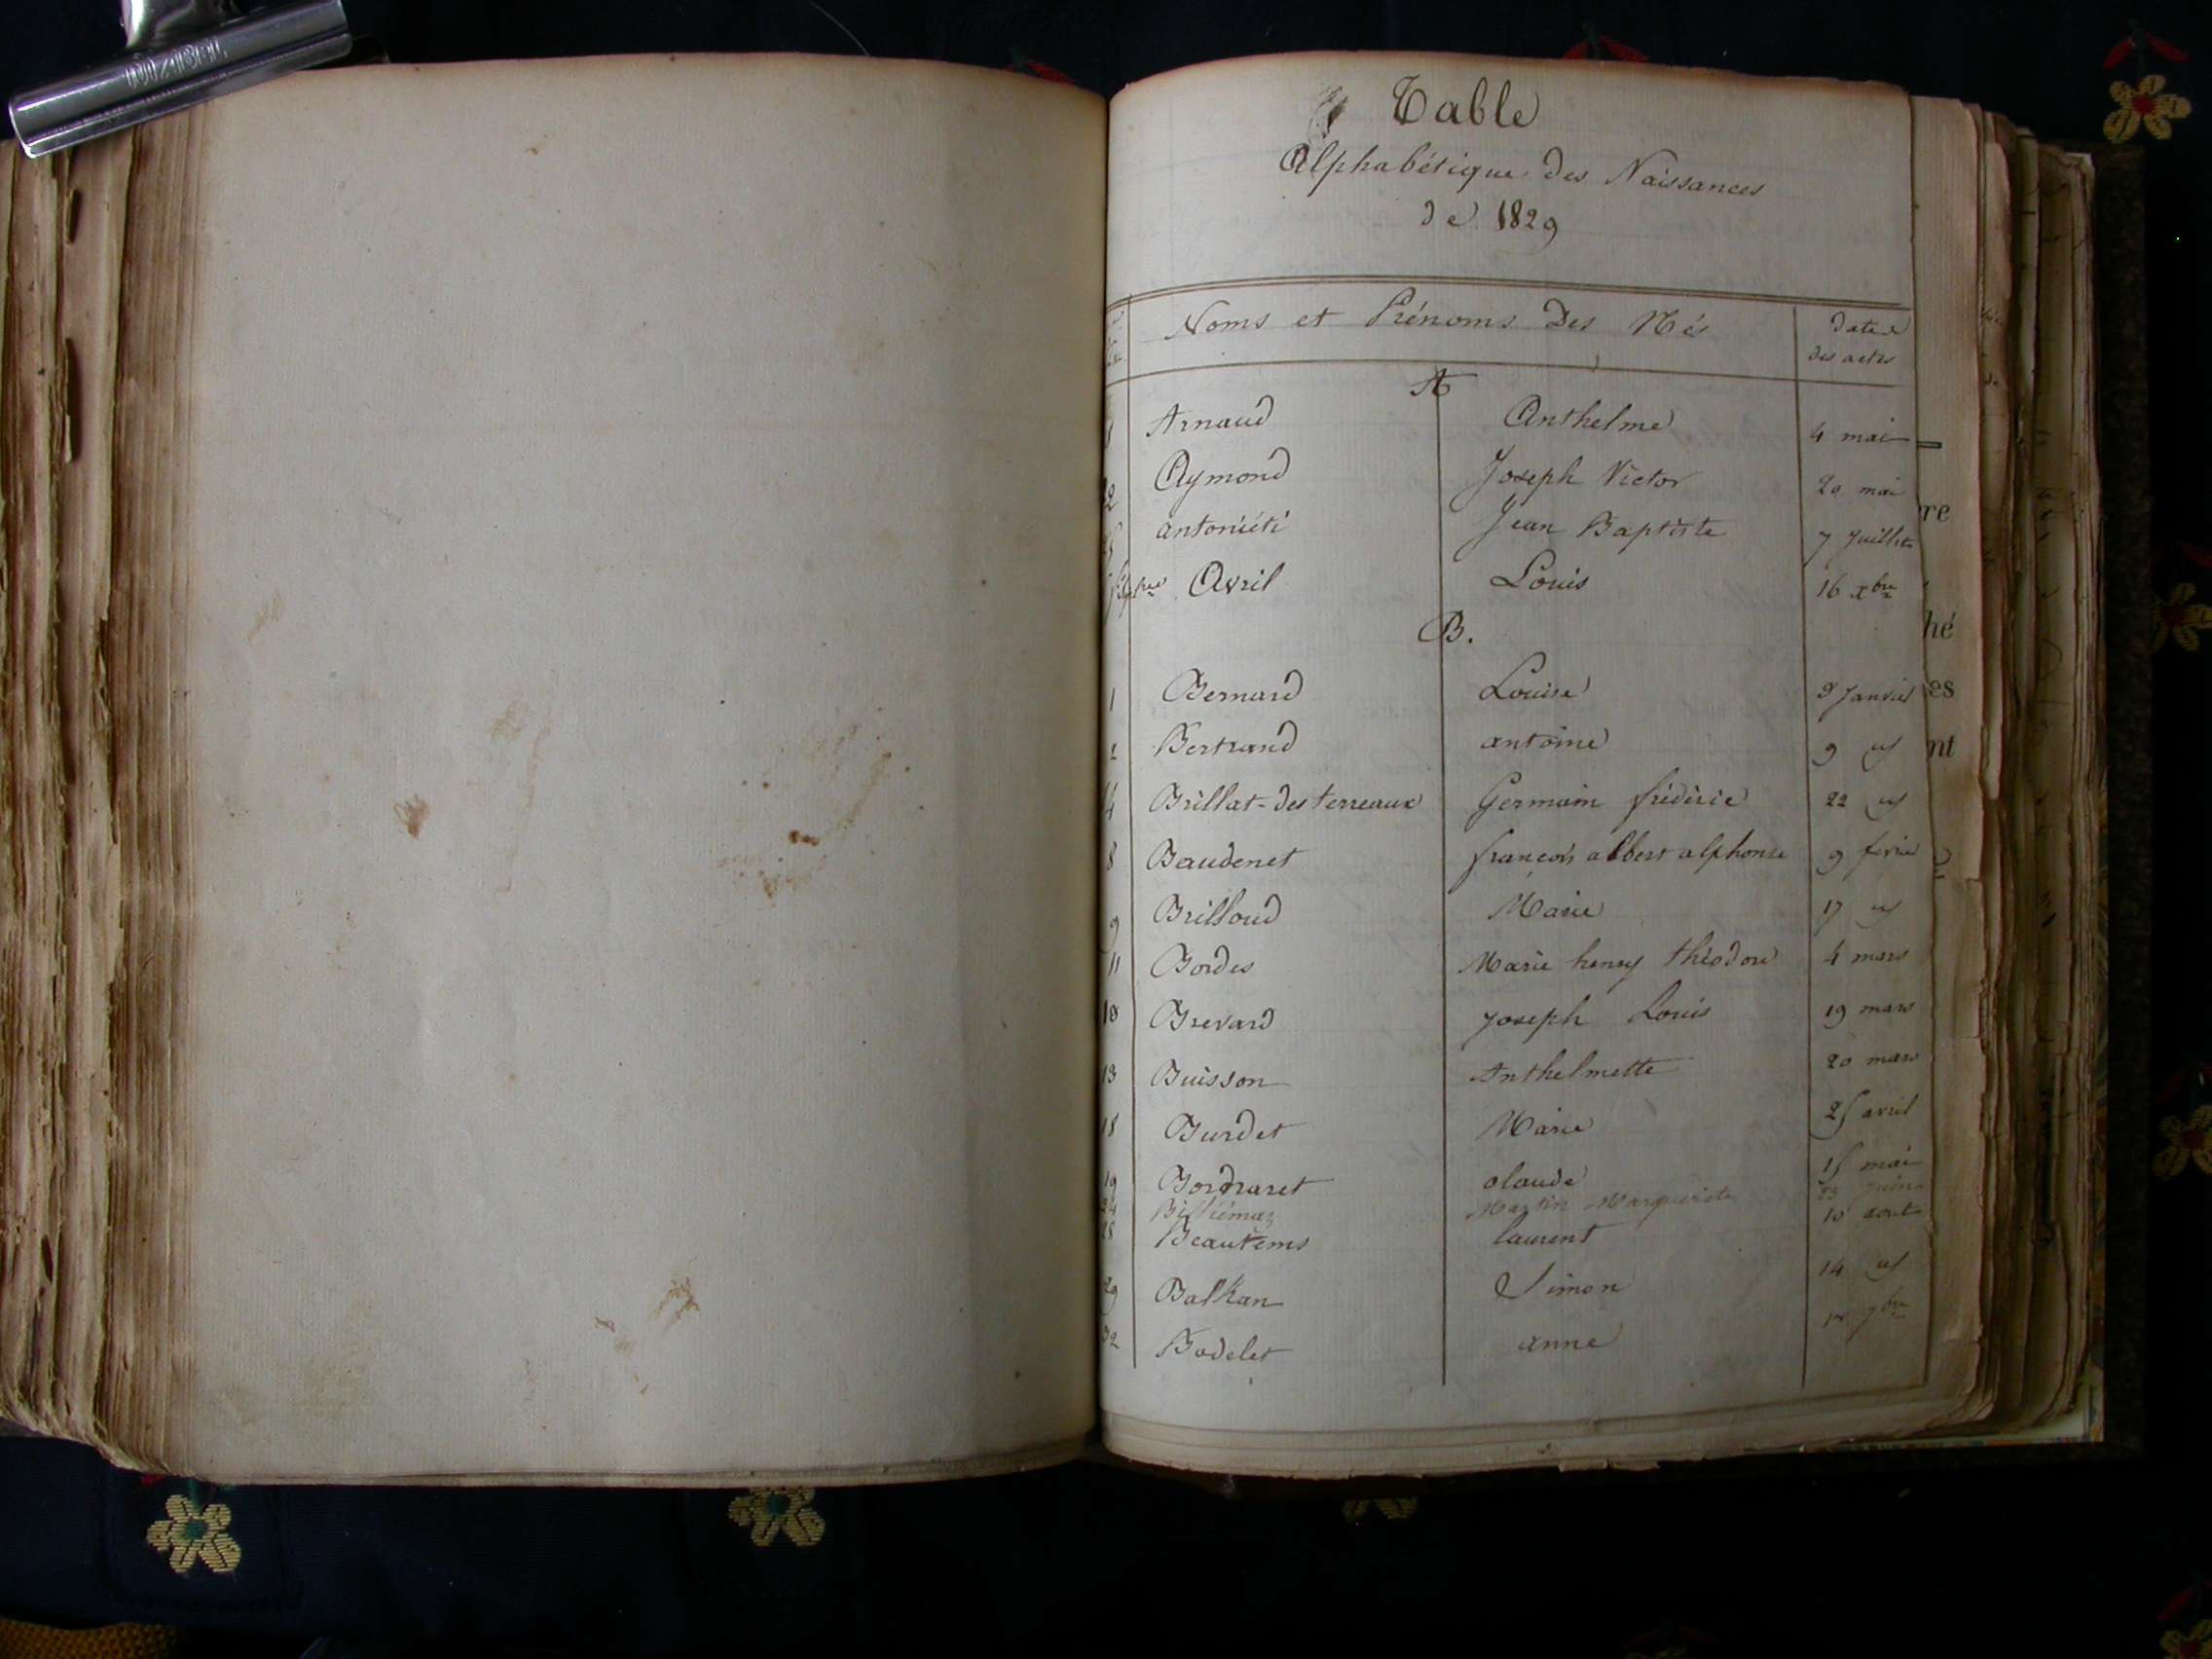 Table
Alphabétique des Naissances
de 1829
Noms et Prénoms Des Nés date des actes
A
Arnaud Anthelme 4 mai
Aymond Joseph Victor 20 mai
antoniéti Jean Baptiste 7 Juillet
Avril Louis 16 xbre
B.
1 Bernard Louise 9 Janvier
2 Bertrand antoine 9
4 Brillat-des terreaux Germain frédéric 22
8 Baudenet françois albert alphonse 9 février
9 Brilloud Marie 17
11 Bordes Marie henry théodore 4 mars
Brevard Joseph Louis 19 mars
13 Buisson Anthelmette 20 mars
18 Burdet Marie 25 avril
19 claude 15 mai
24 Martin Marguerite 23 Juin
28 Beautems laurent 10 aout
29 Balkan Simon 14
32 Bodelet anne 7bre
re
hé
es
nt